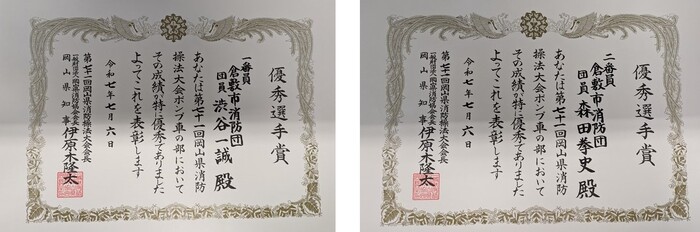 優秀選手賞
一番員
倉敷市消防団
団員 渋谷一誠 殿
あなたは第七十一回岡山県消防
操法大会ポンプ車の部において
その成績が特に優秀でありました
よってこれを表彰します
令和七年七月六日
第七十一回岡山県消防操法大会会長
岡山県知事 伊原木隆太
優秀選手賞
二番員
倉敷市消防団
団員 森田泰史 殿
あなたは第七十一回岡山県消防
操法大会ポンプ車の部において
その成績が特に優秀でありました
よってこれを表彰します
令和七年七月六日
第七十一回岡山県消防操法大会会長
岡山県知事 伊原木隆太